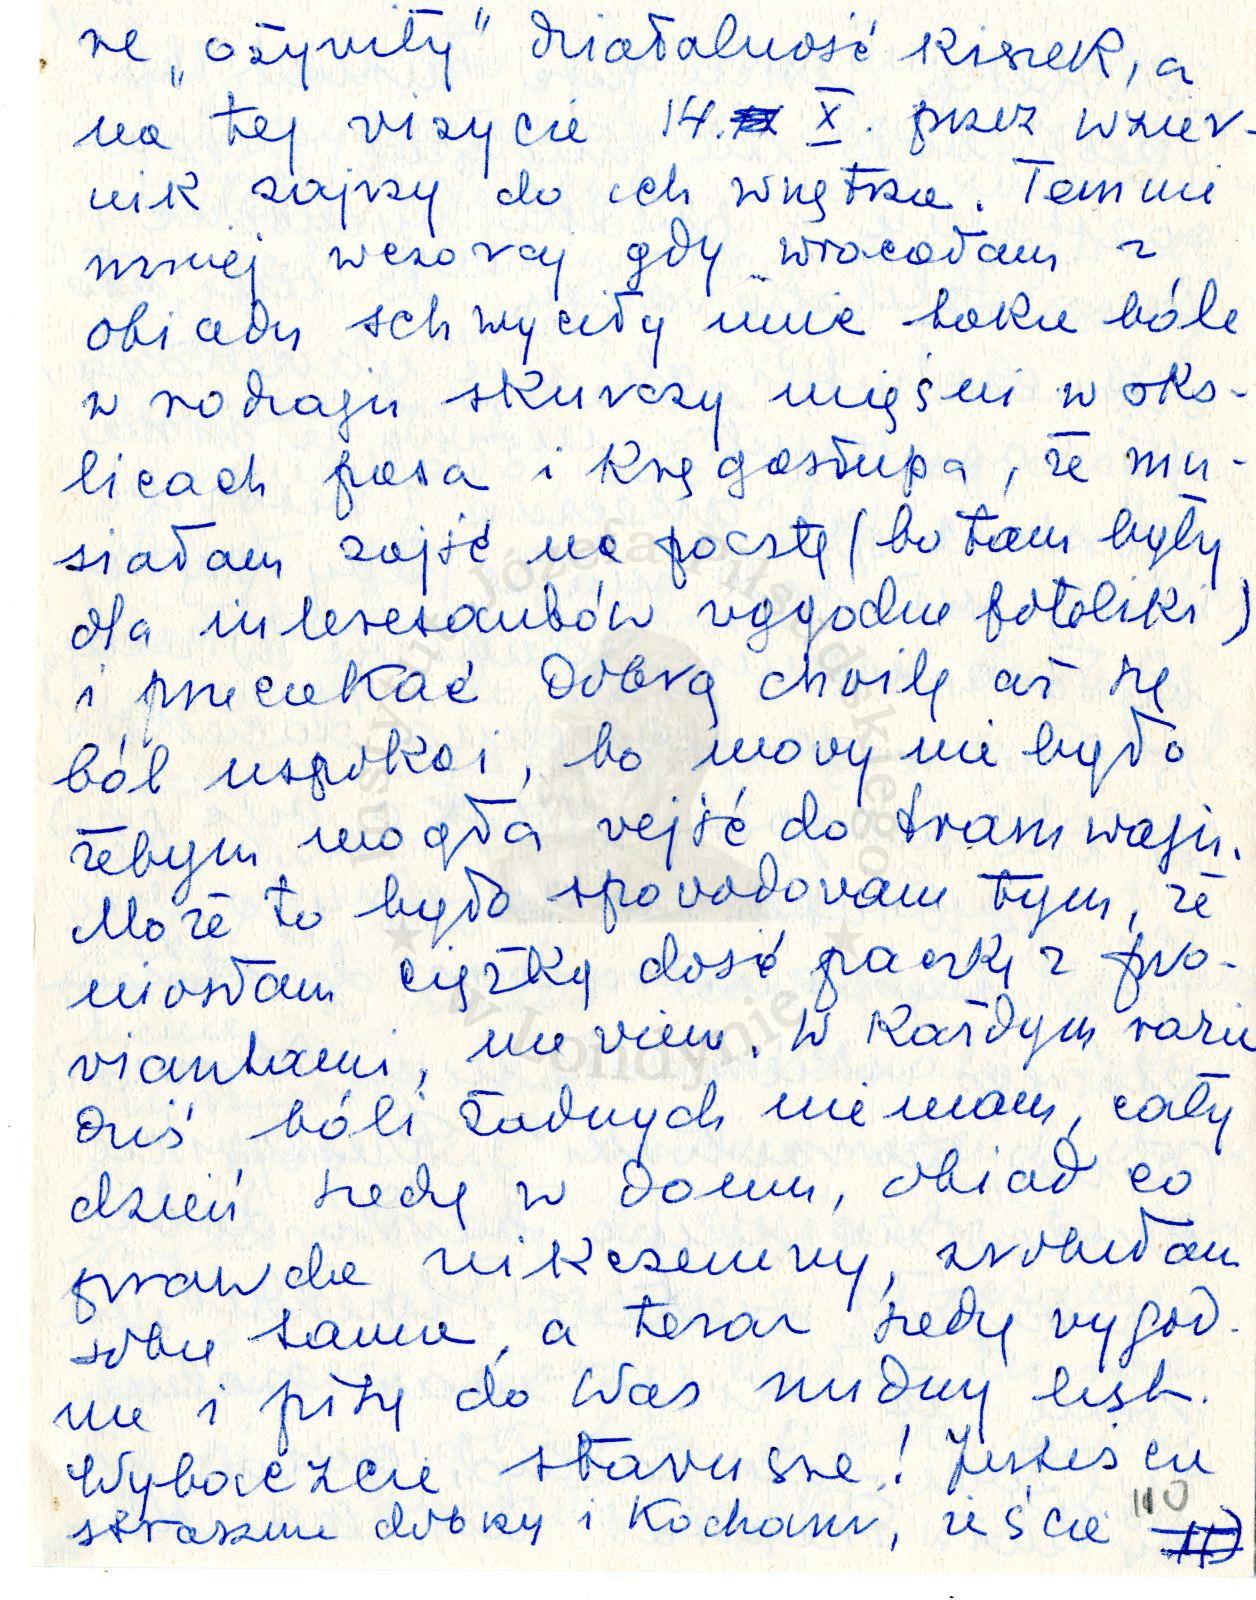 że „ożywiły" działalność kiszek, a
na tej wizycie 14. X. przez wzier-
nik zajrzy do ich wnętrza. Tem nie
mniej wczoraj gdy wracałam z
obiadu schwyciły mnie takie bóle
w rodzaju skurczy mięśni w oko-
licach pasa i kręgosłupa, że mu-
siałam zajść na pocztę (bo tam były
dla interesantów wygodne foteliki)
i przeczekać dobrą chwilę aż się
ból uspokoi, bo mowy nie było
żebym mogła wejść do tramwaju.
Może to było spowodowane tym, że
niosłam ciężką dość paczkę z pro-
wiantami, nie wiem. W każdym razie
dziś bóli żadnych nie mam, cały
dzień siedzę w domu, obiad co
prawda nikczemny, zrobiłam
sobie sama, a teraz siedzę wygod-
nie i piszę do Was nudny list.
Wybaczcie staruszce! Jesteście
strasznie dobrzy i kochani, żeście
110
Instytut Józefa Piłsudskiego
w Londynie